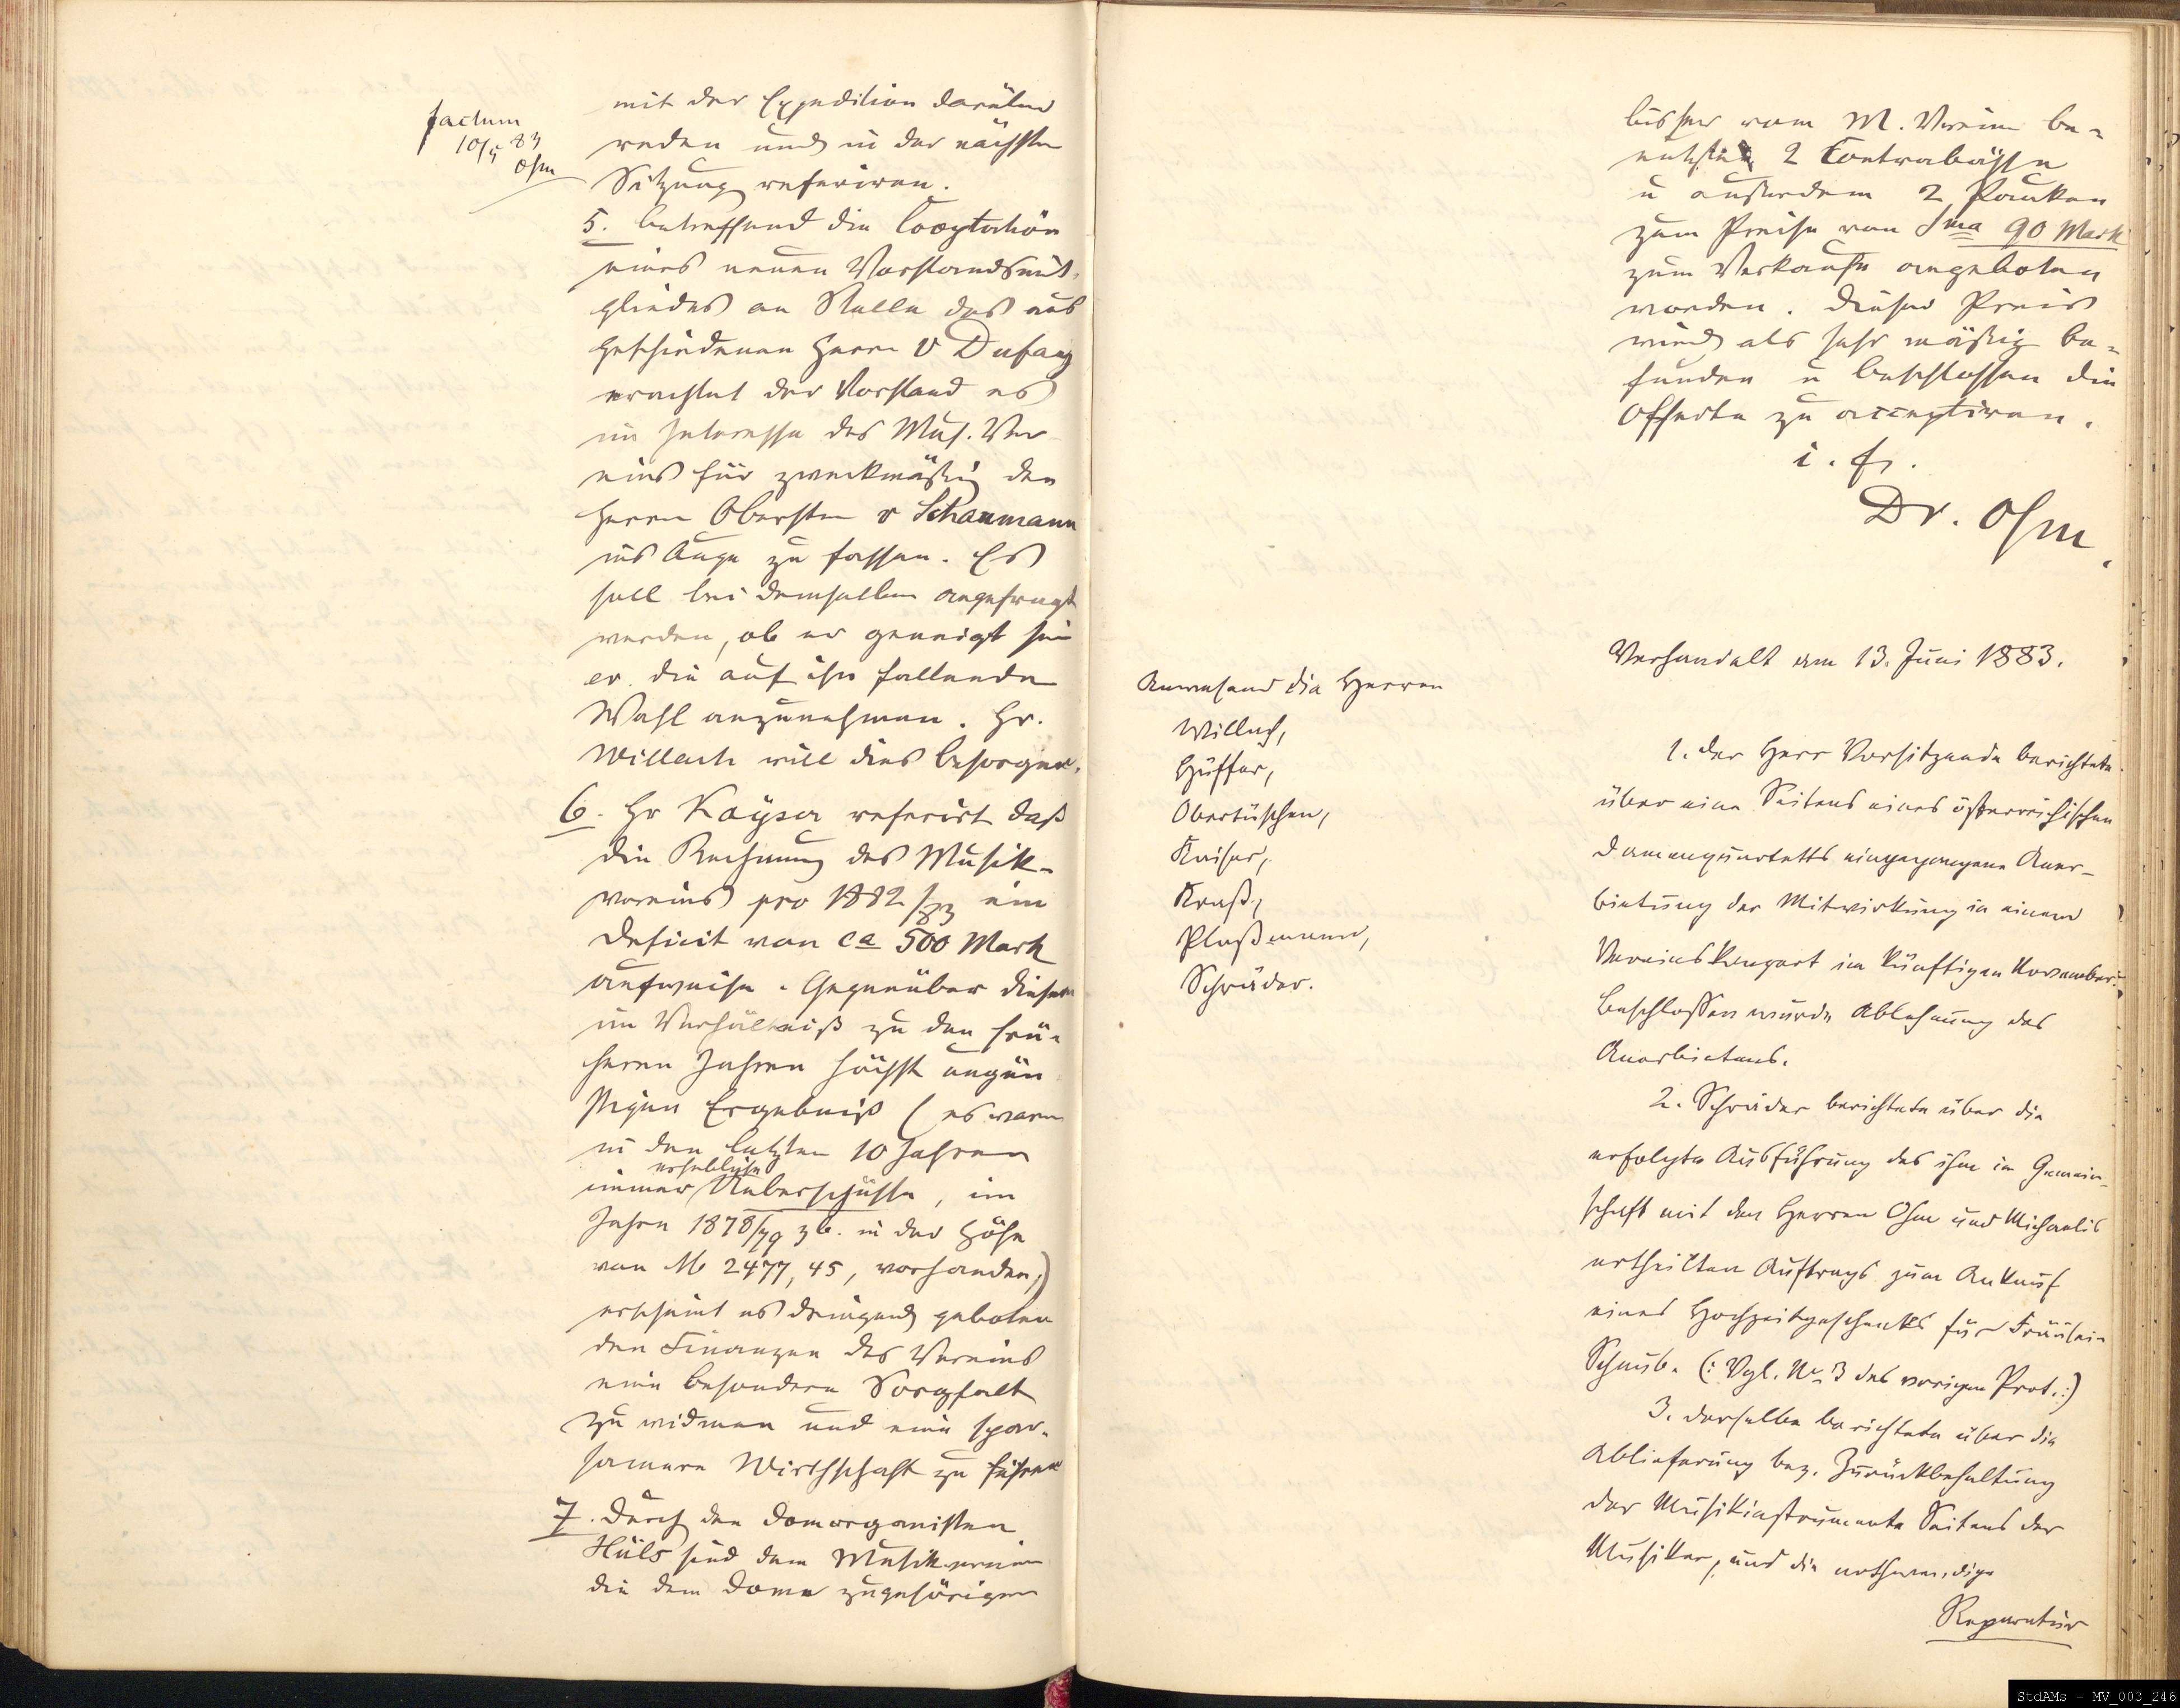 factum
10/5 83
Ohm
mit der Expedition darüber
reden und in der nächsten
Sitzung referiren.
5. betreffend die Cooptation
eines neuen Vorstandsmit-
gliedes an Stelle des aus
geschiedenen Herrn v Dufay
erachtet der Vorstand es
im Interesse des Mus. Ver
eins für zweckmäßig den
Herrn Obersten v Schaumann
ins Auge zu fassen. Es
soll bei demselben angefragt
werden, ob er geneigt sei
ev. die auf ihn fallende
Wahl anzunehmen. Hr.
Willach will dies besorgen.
6. Hr Kayser referirt daß
die Rechnung des Musik-
vereins pro 1882/83 ein
Deficit von ca 500 Mark
aufweise. Gegenüber diesem
im Verhältniß zu den frü-
heren Jahren höchst ungün
stigen Ergebniß (es waren
in den letzten 10 Jahren
immer erhebliche Ueberschüsse, im
Jahre 1878/79 zb. in der Höhe
von M 2477,45, vorhanden,)
erscheint es dringend geboten
den Finanzen des Vereins
eine besondere Sorgfalt
zu widmen und eine spar-
samere Wirthschaft zu führen
7. Durch den Domorganisten
Hüls sind dem Musikverein
die dem Dome zugehörigen
bisher vom M. Verein be-
nutzten 2 Contrabässe
u außerdem 2 Pauken
zum Preise von Sma 90 Mark
zum Verkaufe angeboten
worden. Dieser Preis
wird als sehr mäßig be-
funden u beschlossen die
Offerte zu acceptiren.
i. f.
Dr. Ohm.
Verhandelt am 13. Juni 1883.
Anwesend die Herren
Willach,
Hüffer,
Obertüschen,
Kaiser,
Kraß,
Plaßmann,
Schräder.
1. Der Herr Vorsitzende berichtete
über eine Seitens eines österreichischen
Damenquartetts eingegangene Aner-
bietung der Mitwirkung in einem
Vereinskonzert im künftigen November.
Beschlossen wurde Ablehnung des
Anerbietens.
2. Schräder berichtete über die
erfolgte Ausführung des ihm in Gemein-
schaft mit den Herren Ohm und Michaelis
ertheilten Auftrags zum Ankauf
eines Hochzeitgeschenkes für Fräulein
Schaub. (: Vgl. No 3 des vorigen Prot. :)
3. Derselbe berichtete über die
Ablieferung bez. Zurückbehaltung
der Musikinstrumente Seitens der
Musiker, und die nothwendige
Reparatur
StdAMs - MV_003_246